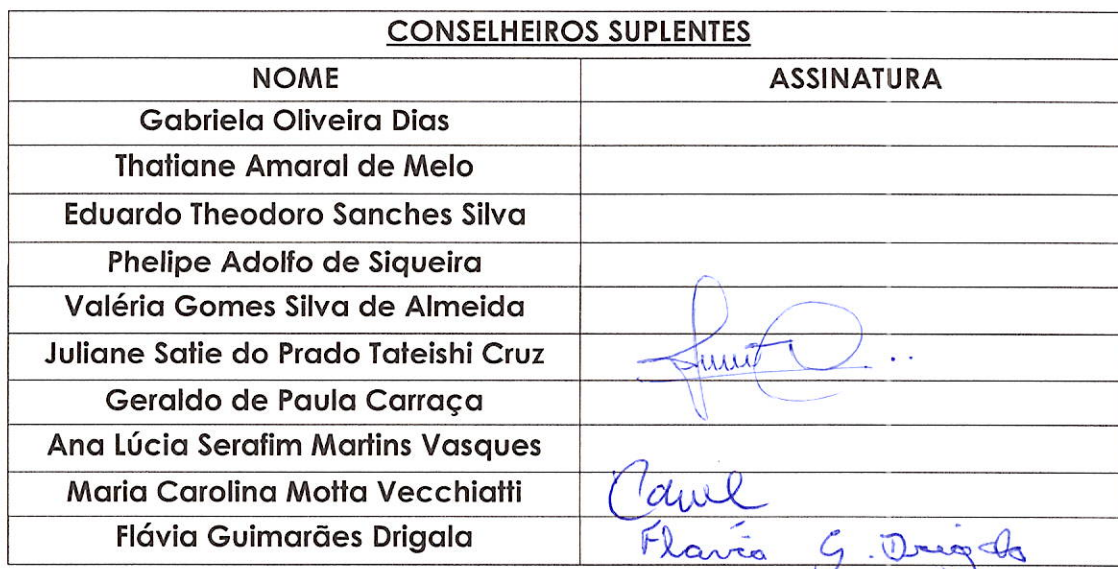 CONSELHEIROS SUPLENTES
NOME ASSINATURA
Gabriela Oliveira Dias
Thatiane Amaral de Melo
Eduardo Theodoro Sanches Silva
Phelipe Adolfo de Siqueira
Valéria Gomes Silva de Almeida
Juliane Satie do Prado Tateishi Cruz
Geraldo de Paula Carraça
Ana Lúcia Serafim Martins Vasques
Maria Carolina Motta Vecchiatti
Flávia Guimarães Drigala Flavia G. Drigala